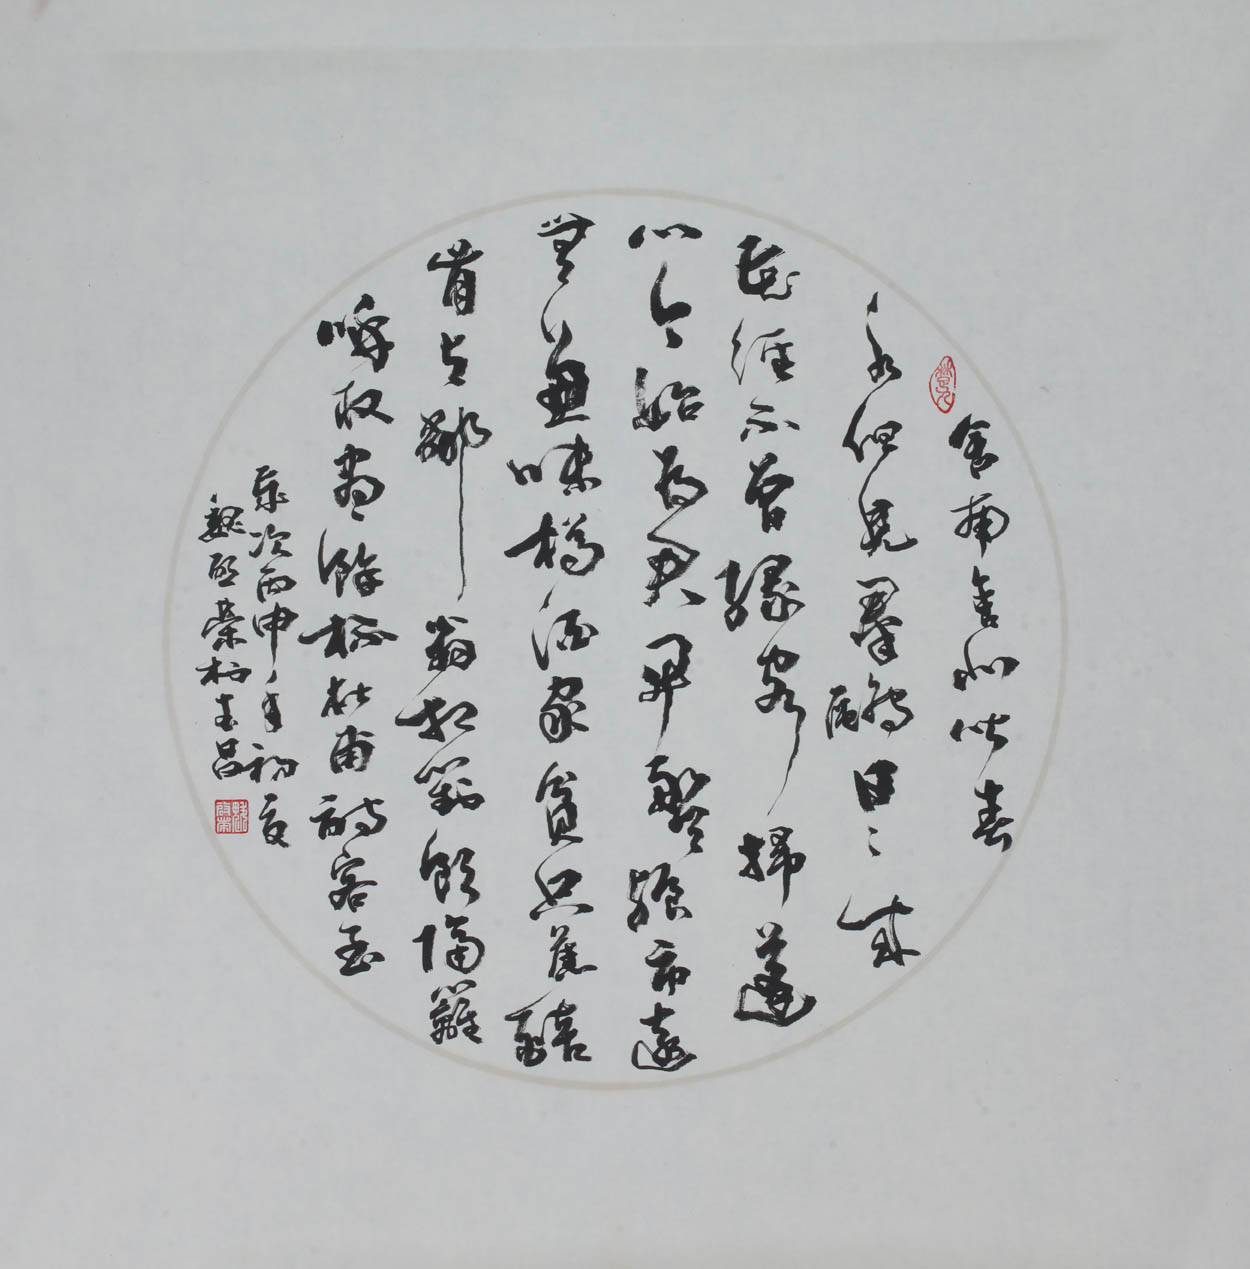 舍南舍北皆春
水但見羣鷗日〻來
花徑不曾緣客掃蓬
門今始為君開盤飧市遠
無兼味樽酒家貧只舊醅
肯与鄰翁相對飲隔籬
呼取盡餘杯杜甫詩客至
歲次丙申年初夏
魏啟榮於